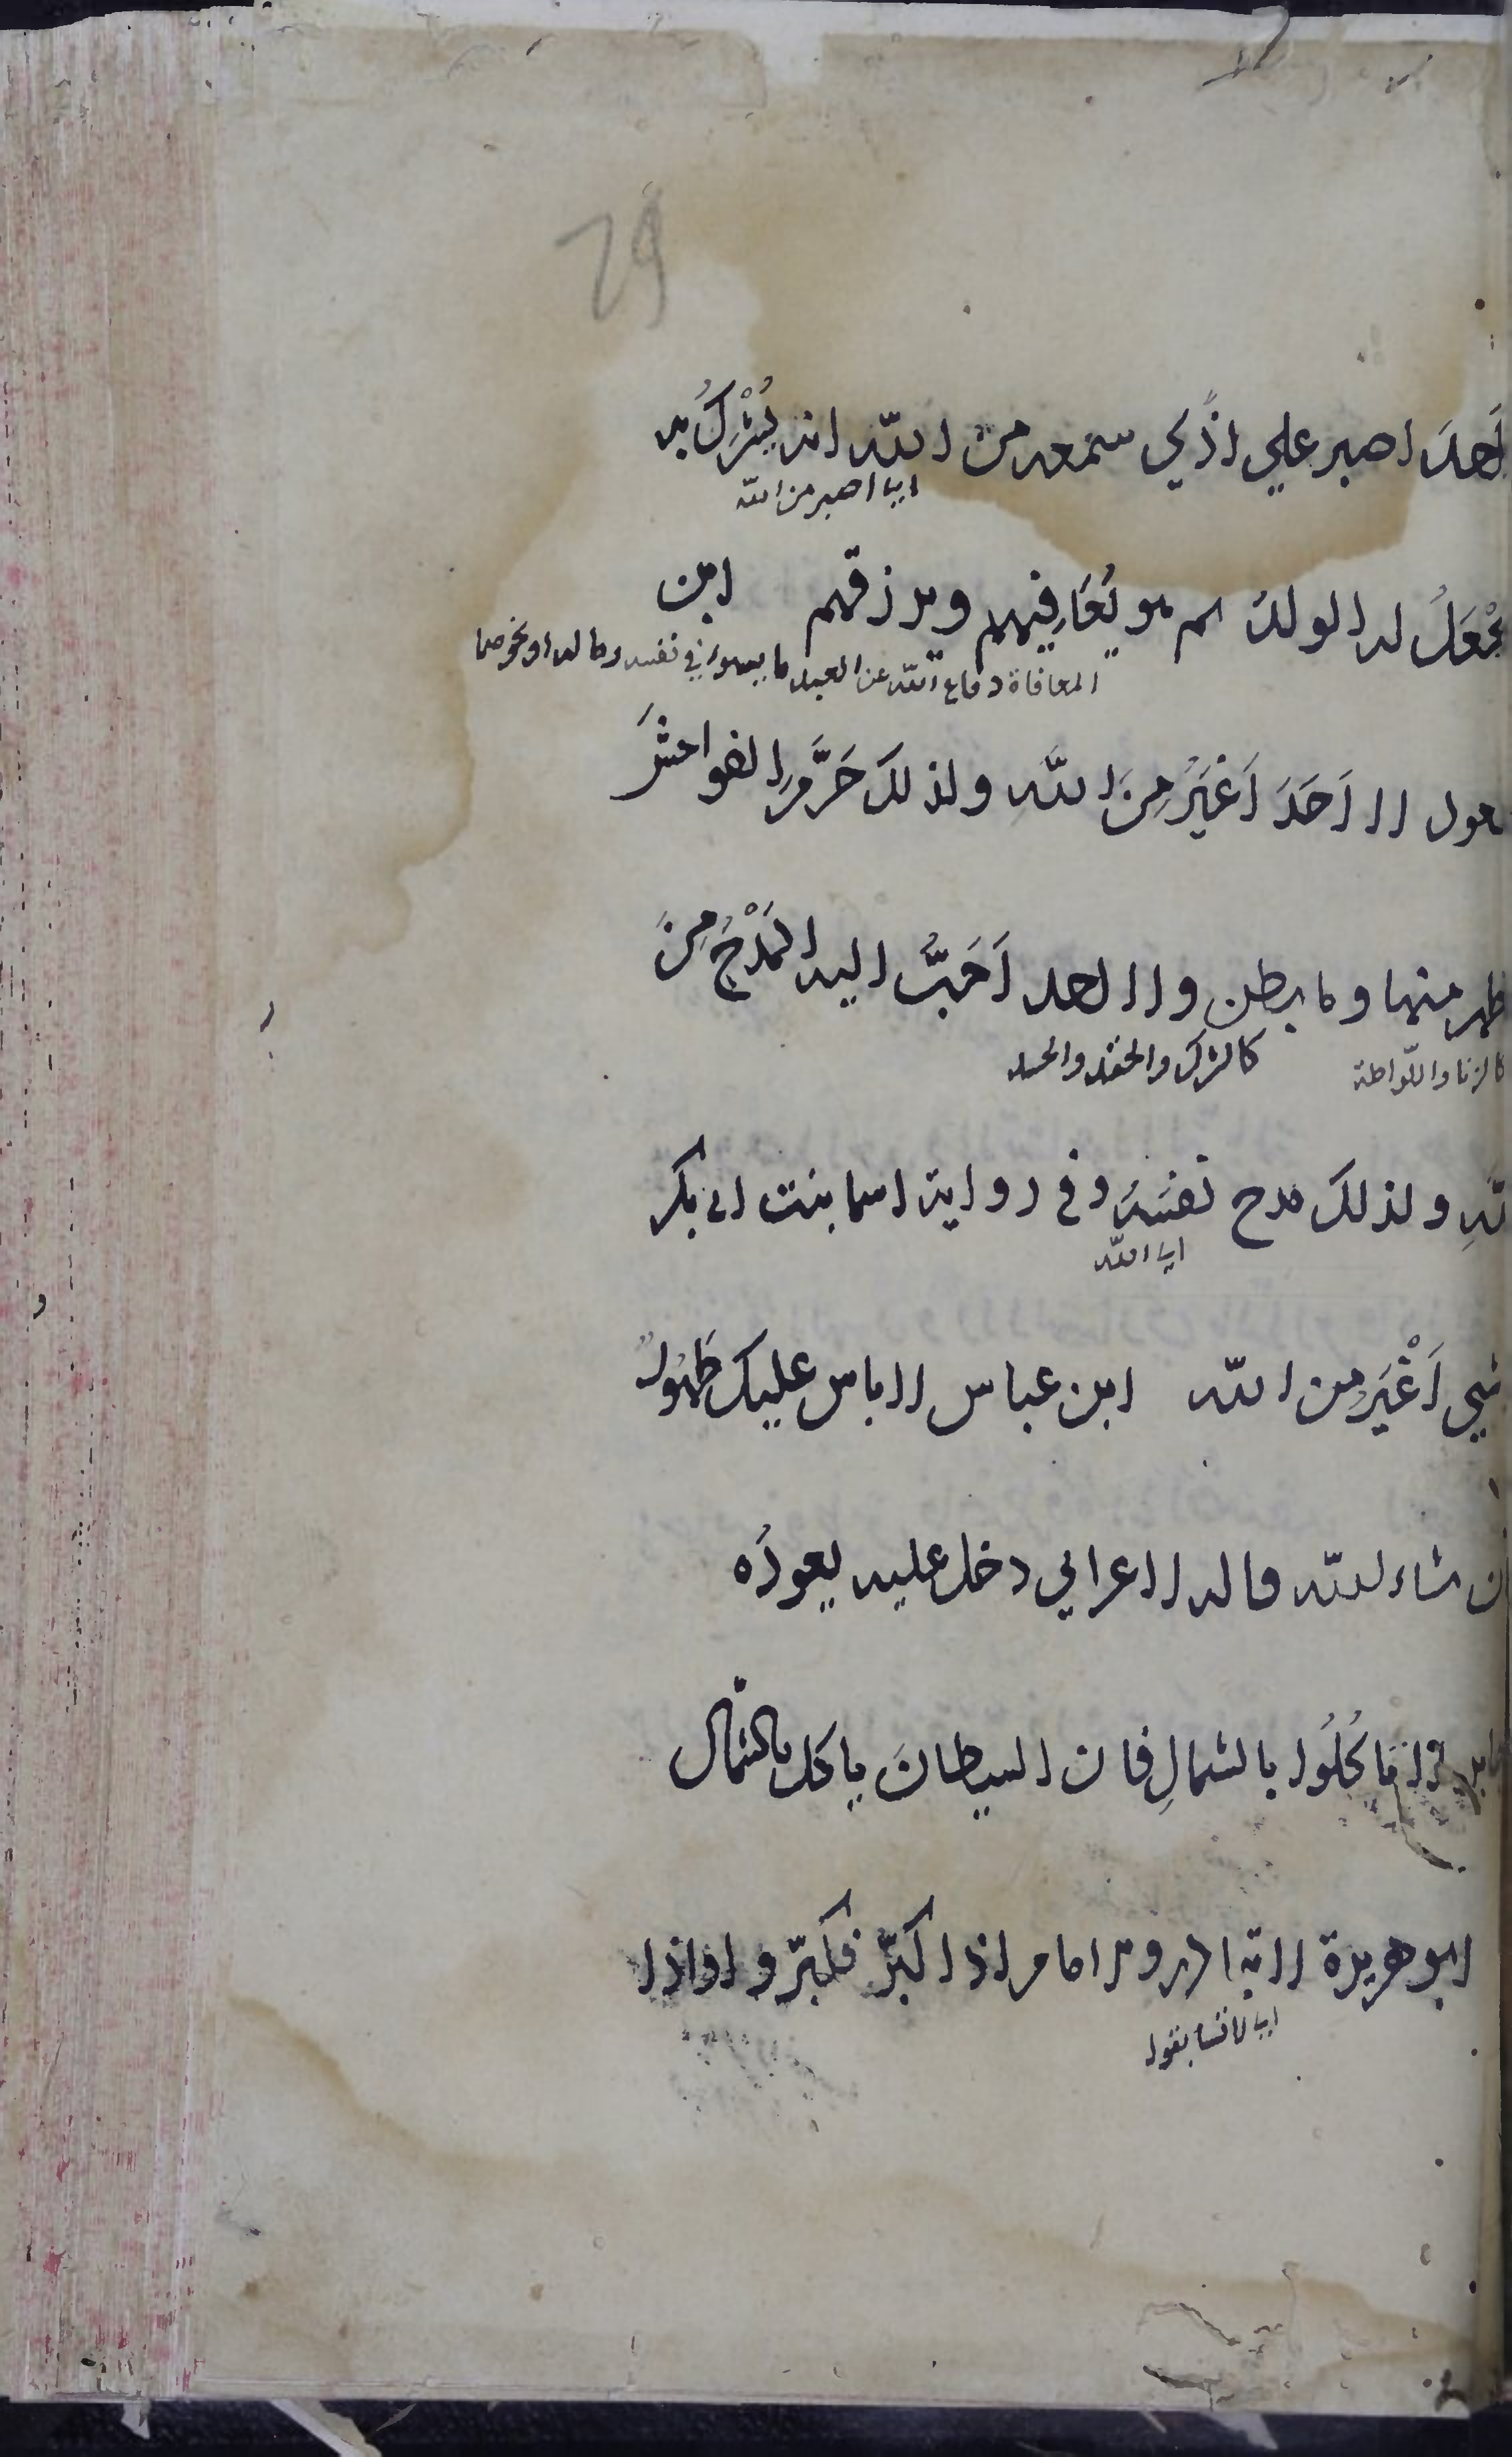 29
اَحدَ اصبر علي اذًي سمعه من اللّه انه يُشْرِكُ به
اي اصبر من اللّه
يُجْعَلُ له الولدُ ثم هو يُعَافِيهم ويرزقهم ابن
المعافاة دفاع اللّه عن العبد ما يسوءه في نفسه وماله او نحوهما
مسعود لا اَحَدَ اَغْيَرُ مِنَ اللّهِ ولذلك حَرَّمَ الفواحشَ
ظهر منها وما بطن ولا احد اَحَبَّ اليه المَدْحُ مِنَ
كالزنا واللّواطة كالشرك والحقد والحسد
للّهِ ولذلكَ مدح نفسَهُ وفي رواية اسما بنت ابي بكر
اي اللّه
شيي اَغْيَرِ من اللّه ابن عباس لا باس عليك طَهُورٌ
ان شاء اللّه قاله لاعرابي دخل عليه يعودُه
جابر لا تاكُلُوا بالشمالِ فان الشيطانَ ياكل بالشمال
ابو هريرة لا تبادروا الامام اذا كبّر فكبّروا واذا
اي لا تسابقوا